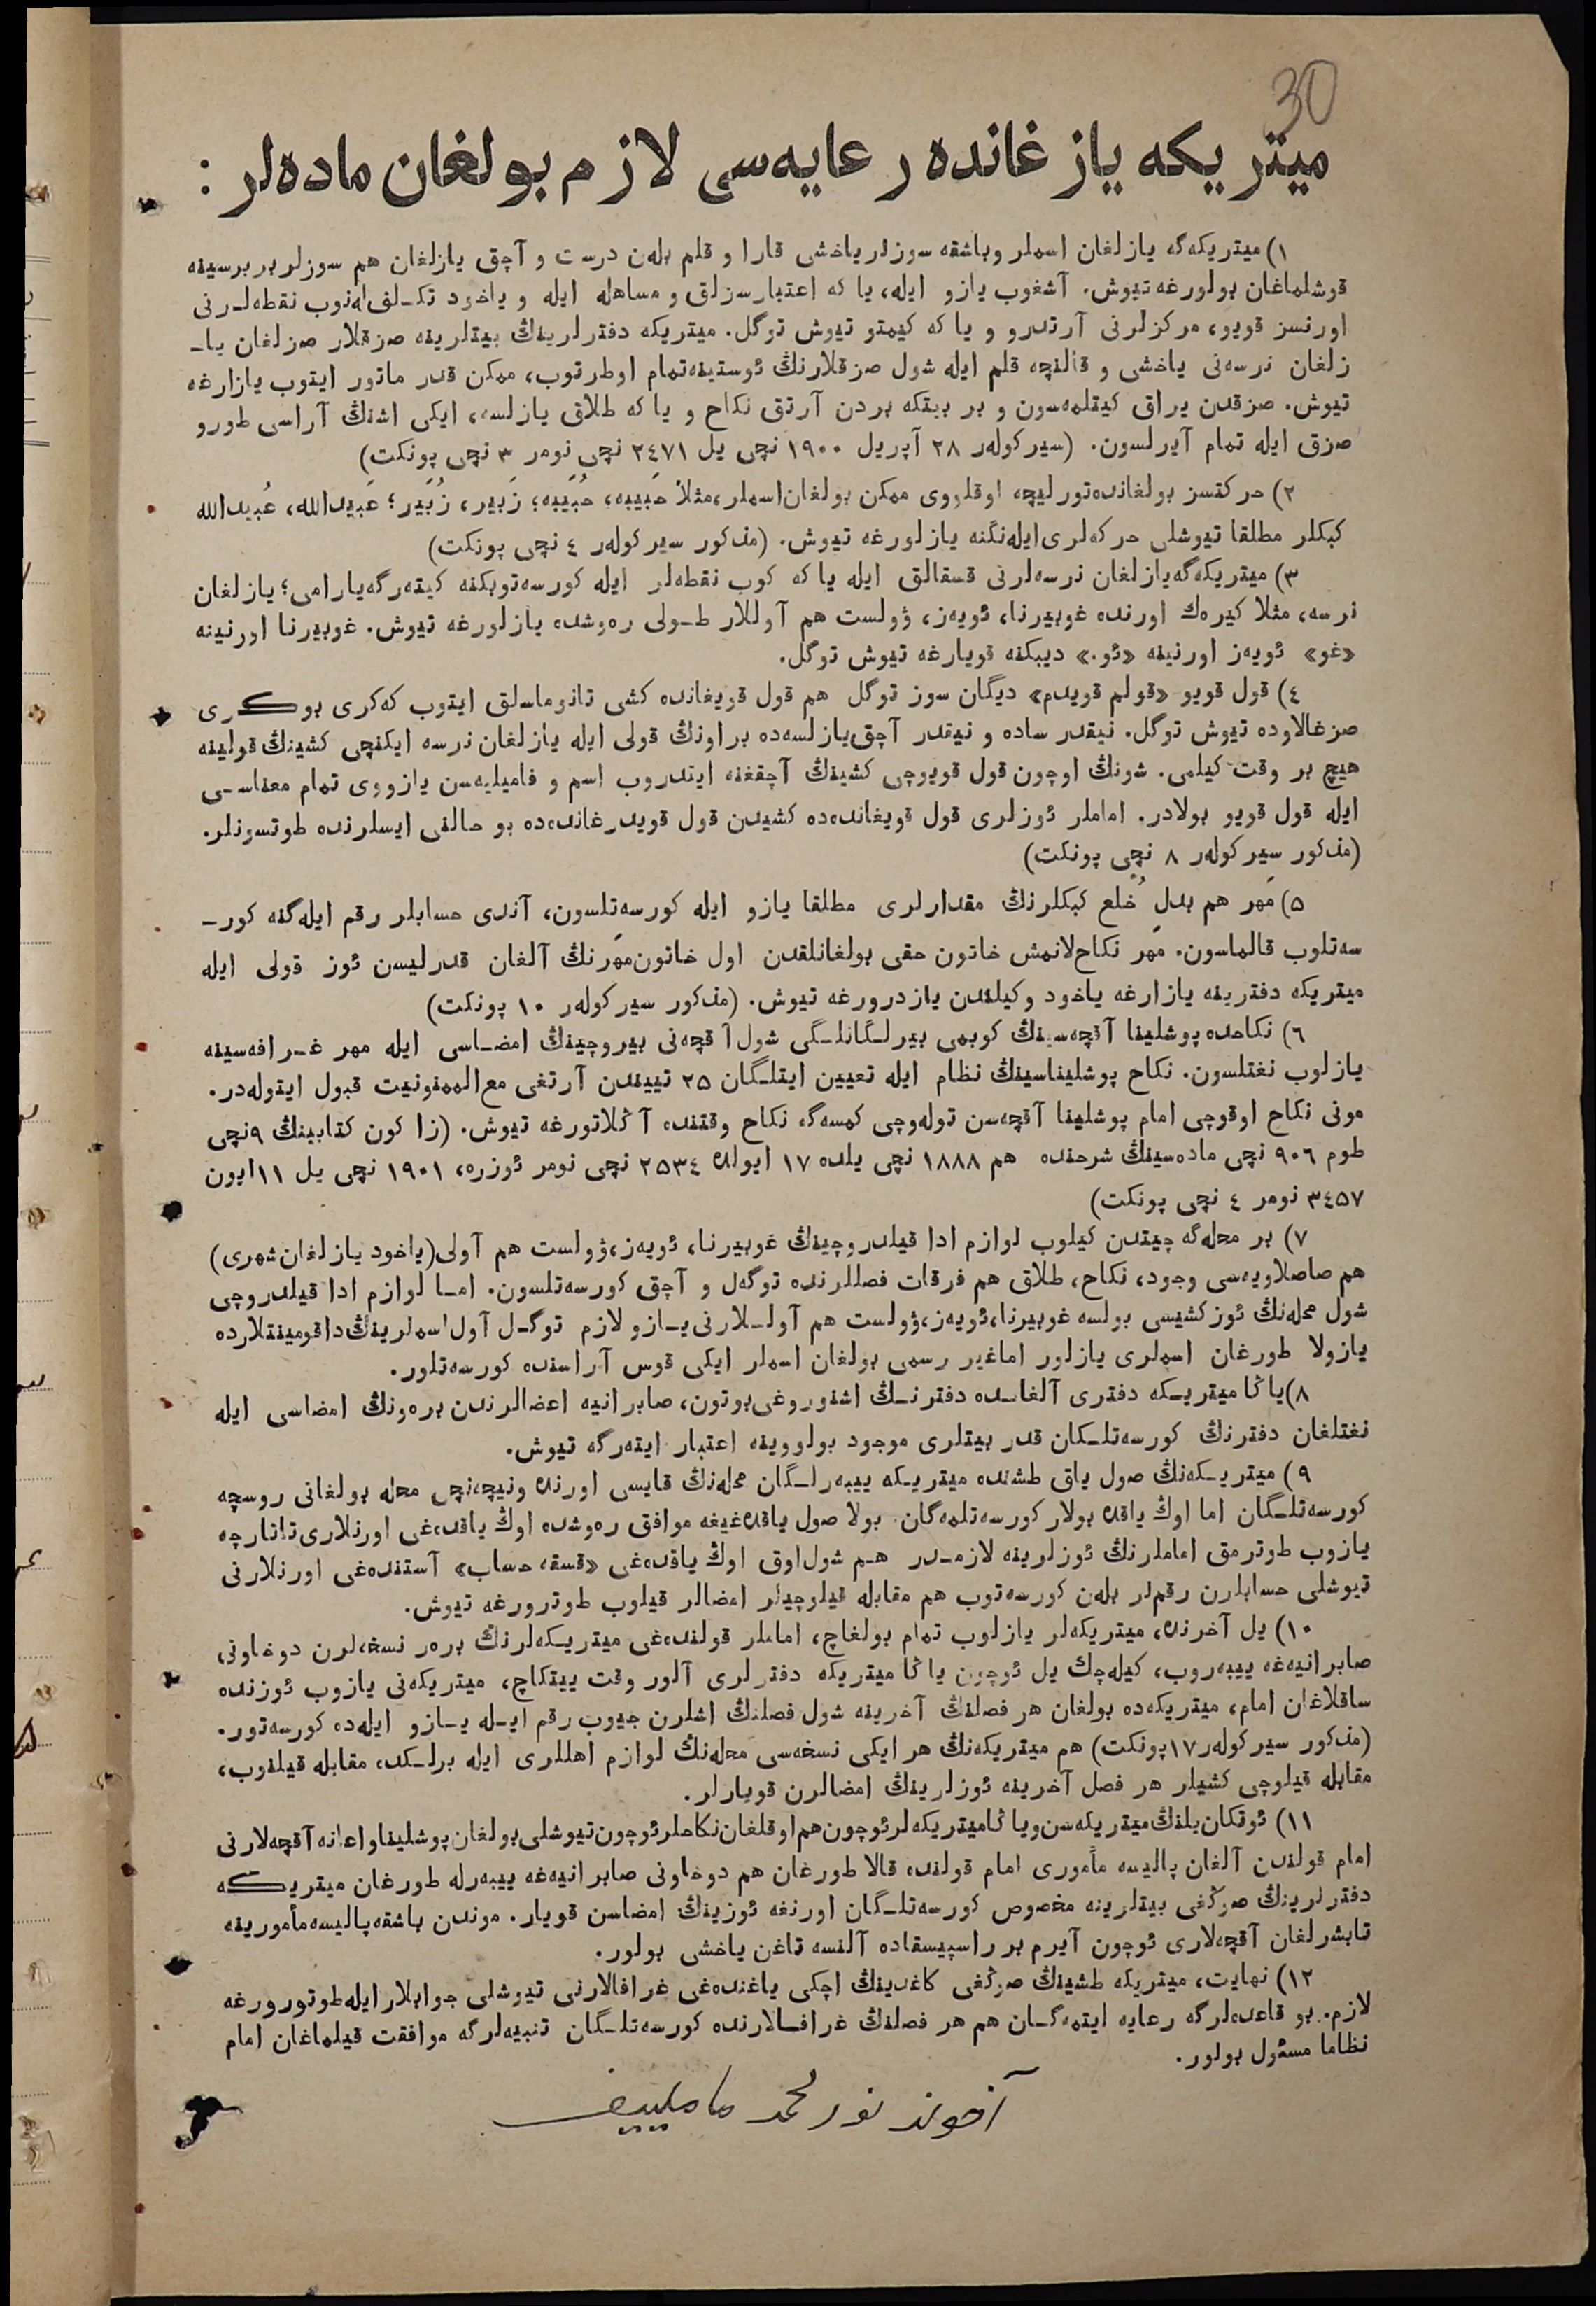 30
میتریکه یازغانده رعایه‌سی لازم بولغان ماده‌لر :
١) میتریکه‌گه یازلغان اسملر وباشقه سوزلر یاخشی قارا و قلم بله‌ن درست و آچق یازلغان هم سوزلر بربرسینه
قوشلماغان بولورغه تیوش. آشغوب یازو ایله، یا که اعتبارسزلق و مساهله ایله و یاخود تکـلف‌له‌نوب نقطه‌لـرنی
اورنسز قویو، مرکزلرنی آرتدرو و یا که کیمتو تیوش توگل. میتریکه دفترلرینڭ بیتلرینه صزقلار صزلغان یاـ
زلغان نرسه‌نی یاخشی و قالنچه قلم ایله شول صزقلارنڭ ئوستینه تمام اوطرتوب، ممکن قدر ماتور ایتوب یازارغه
تیوش. صزقدن یراق کیتلمه‌سون و بر بیتکه بردن آرتق نکاح و یا که طلاق یازلسه، ایکی اشنڭ آراسی طورو
صزق ایله تمام آیرلسون. (سیرکوله‌ر ٢٨ آپریل ١٩٠٠ نچی یل ٢٤٧١ نچی نومر ٣ نچی پونکت)
٢) حرکتسز بولغانده تورلیچه اوقلووی ممکن بولغان اسملر، مثلاً حَبیبه، حُبَیبه؛ زَبیر، زُبَیر؛ عَبیدالله، عُبیدالله
کبکلر مطلقا تیوشلی حرکه‌لری ایله‌نگنه یازلورغه تیوش. (مذکور سیرکوله‌ر ٤ نچی پونکت)
٣) میتریکه‌گه یازلغان نرسه‌لرنی قسقالق ایله یا که کوب نقطه‌لر ایله کورسه‌توبکنه کیته‌رگه یارامی؛ یازلغان
نرسه، مثلا کیره‌ك اورنده غوبیرنا، ئویه‌ز، ۋولست هم آوللار طـولی ره‌وشده یازلورغه تیوش. غوبیرنا اورنینه
«غو» ئویه‌ز اورنینه «ئو.» دیبکنه قویارغه تیوش توگل.
٤) قول قویو «قولم قویدم» دیگان سوز توگل هم قول قویغانده کشی تانوماسلق ایتوب که‌کری بوکری
صزغالاوده تیوش توگل. نیقدر ساده و نیقدر آچق یازلسه‌ده براونڭ قولی ایله یازلغان نرسه ایکنچی کشینڭ قولینه
هیچ بر وقت کیلمی. شونڭ اوچون قول قویوچی کشینڭ آچقغنه ایتدروب اسم و فامیلیه‌سن یازووی تمام معناسـی
ایله قول قویو بولادر. اماملر ئوزلری قول قویغانده‌ده کشیدن قول قویدرغانده‌ده بو حالنی ایسلرنده طوتسونلر.
(مذکور سیرکوله‌ر ٨ نچی پونکت)
٥) مَهر هم بدلِ خُلع کبکلرنڭ مقدارلری مطلقا یازو ایله کورسه‌تلسون، آندی حسابلر رقم ایله‌گنه کورـ
سه‌تلوب قالماسون. مَهر نکاحلانمش خاتون حقی بولغانلقدن اول خاتون مَهرنڭ آلغان قدرلیسن ئوز قولی ایله
میتریکه دفترینه یازارغه یاخود وکیلندن یازدرورغه تیوش. (مذکور سیرکوله‌ر ١٠ پونکت)
٦) نکاحده پوشلینا آقچه‌سینڭ کوبمی بیرلـگانلـگی شول آقچه‌نی بیروچینڭ امضـاسی ایله مهر غـرافه‌سینه
یازلوب نغتلسون. نکاح پوشلیناسینڭ نظام ایله تعیین ایتلـگان ٢٥ تییندن آرتغی مع‌الممنونیت قبول ایتوله‌در.
مونی نکاح اوقوچی امام پوشلینا آقچه‌سن توله‌وچی کمسه‌گه نکاح وقتنده آڭلاتورغه تیوش. (زاکون کتابینڭ ٩نچی
طوم ٩٠٦ نچی ماده‌سینڭ شرحنده هم ١٨٨٨ نچی یلده ١٧ ایولده ٢٥٣٤ نچی نومر ئوزره، ١٩٠١ نچی یل ١١ایون
٣٤٥٧ نومر ٤ نچی پونکت)
٧) بر محله‌گه چیتدن کیلوب لوازم ادا قیلدروچینڭ غوبیرنا، ئویه‌ز، ۋولست هم آولی (یاخود یازلغان شهری)
هم صاصلاویه‌سی وجود، نکاح، طلاق هم فرقات فصللرنده توگه‌ل و آچق کورسه‌تلسون. امـا لوازم ادا قیلدروچی
شول محله‌نڭ ئوز کشیسی بولسه غوبیرنا، ئویه‌ز، ۋولست هم آولـلارنی یـازو لازم توگـل آول اسملرینڭ داقومینتلارده
یازولا طورغان اسملری یازلور اماغیر رسمی بولغان اسملر ایکی قوس آراسنده کورسه‌تلور.
٨) یاڭا میتریـکه دفتری آلغانـده دفترنـڭ اشنوروغی بوتون، صابرانیه اعضالرندن بره‌ونڭ امضاسی ایله
نغتلغان دفترنڭ کورسه‌تلـکان قدر بیتلری موجود بولووینه اعتبار ایته‌رگه تیوش.
٩) میتریـکه‌نڭ صول یاق طشنده میتریـکه ییبه‌رلـگان محله‌نڭ قایسی اورنده ونیچه‌نچی محله بولغانی روسچه
کورسه‌تلـگان اما اوڭ یاقده بولار کورسه‌تلمه‌گان. بولا صول یاقده‌غیغه موافق ره‌وشده اوڭ یاقده‌غی اورنلاری تاتارچه
یازوب طوترمق اماملرنڭ ئوزلرینه لازمـدر هـم شول‌اوق اوڭ یاقده‌غی «قسقه حساب» آستنده‌غی اورنلارنی
تیوشلی حسابلرن رقملر بله‌ن کورسه‌توب هم مقابله قیلوچیلر امضالر قیلوب طوترورغه تیوش.
١٠) یل آخرنده، میتریکه‌لر یازلوب تمام بولغاچ، اماملر قولنده‌غی میتریـکه‌لرنڭ بره‌ر نسخه‌لرن دوخاونی
صابرانیه‌غه ییبه‌روب، کیله‌چك یل ئوچون یاڭا میتریکه دفترلری آلور وقت ییتکاچ، میتریکه‌نی یازوب ئوزنده
ساقلاغان امام، میتریکه‌ده بولغان هر فصلنڭ آخرینه شول فصلنڭ اشلرن جیوب رقم ایـله یـازو ایله‌ده کورسه‌تور.
(مذکور سیرکوله‌ر ١٧پونکت) هم میتریکه‌نڭ هر ایکی نسخه‌سی محله‌نڭ لوازم اهللری ایله برلـکده مقابله قیلنوب،
مقابله قیلوچی کشیلر هر فصل آخرینه ئوزلرینڭ امضالرن قویارلر.
١١) ئوتکان یلنڭ میتریکه‌سن ویاڭا میتریکه‌لر ئوچون هم اوقلغان نکاحلر ئوچون تیوشلی بولغان پوشلینا واعانه آقچه‌لارنی
امام قولندن آلغان پالیسه مأموری امام قولنده قالا طورغان هم دوخاونی صابرانیه‌غه ییبه‌رله طورغان میتریکه
دفترلرینڭ صوڭغی بیتلرینه مخصوص کورسه‌تلـگان اورنغه ئوزینڭ امضاسن قویار. موندن باشقه پالیسه مأمورینه
تابشرلغان آقچه‌لاری ئوچون آیرم بر راسپیسقاده آلنسه تاغن یاخشی بولور.
١٢) نهایت، میتریکه طشینڭ صوڭغی کاغدینڭ اچکی یاغنده‌غی غرافالارنی تیوشلی جوابلار ایله طوتورورغه
لازم. بو قاعده‌لرگه رعایه ایتمه‌گـان هم هر فصلنڭ غرافـالارنده کورسه‌تلـگان تنبیه‌لرگه موافقت قیلماغان امام
نظاما مسئول بولور.
آخوند نورمحمد ماملییف